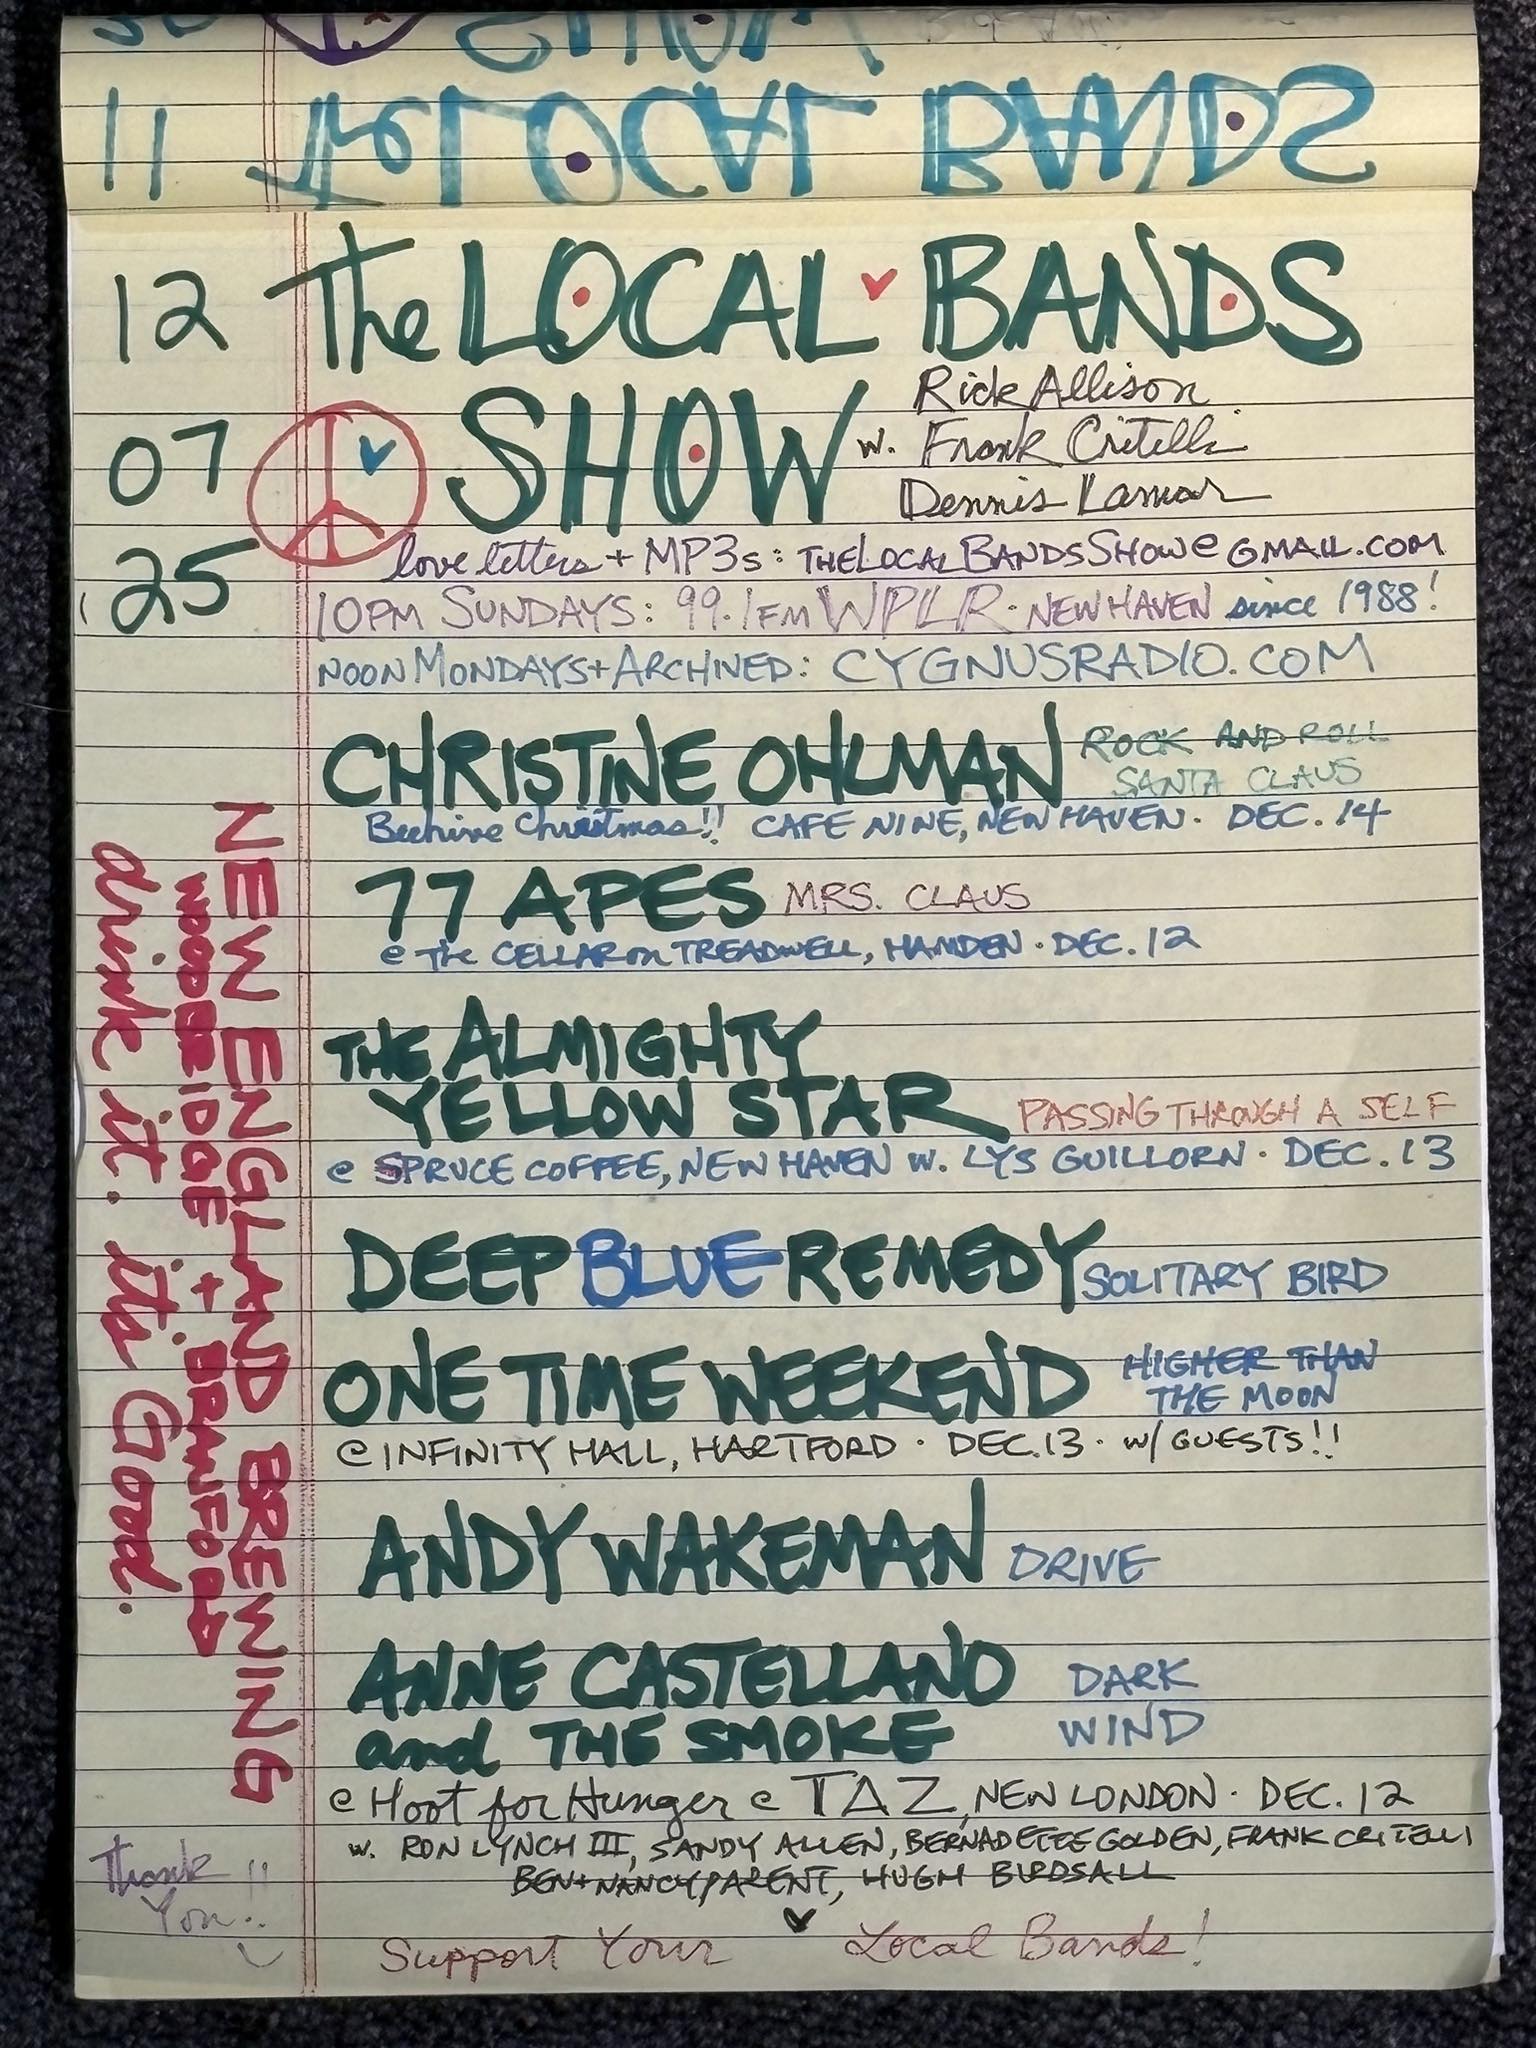 11
The LOCAL BANDS
SHOW
12
The LOCAL BANDS
SHOW
07
25
w. Rick Allison
Frank Critelli
Dennis Lamar
love letters + MP3s: THELOCALBANDSSHOW@GMAIL.COM
10PM SUNDAYS: 99.1FM WPLR · NEW HAVEN since 1988!
NOON MONDAYS + ARCHIVED: CYGNUSRADIO.COM
CHRISTINE OHLMAN ROCK AND ROLL
SANTA CLAUS
Beehive Christmas!! CAFE NINE, NEW HAVEN · DEC. 14
77 APES MRS. CLAUS
@ The CELLAR on TREADWELL, HAMDEN · DEC. 12
THE ALMIGHTY
YELLOW STAR PASSING THROUGH A SELF
@ SPRUCE COFFEE, NEW HAVEN w. LYS GUILLORN · DEC. 13
DEEP BLUE REMEDY SOLITARY BIRD
ONE TIME WEEKEND HIGHER THAN
THE MOON
@ INFINITY HALL, HARTFORD · DEC. 13 · w/ GUESTS!!
ANDY WAKEMAN DRIVE
ANNE CASTELLANO DARK
and THE SMOKE WIND
@ Hoot for Hunger @ TAZ, NEW LONDON · DEC. 12
w. RON LYNCH III, SANDY ALLEN, BERNADETTE GOLDEN, FRANK CRITELLI
BEN + NANCY PARENT, HUGH BIRDSALL
Support Your Local Bands!
NEW ENGLAND BREWING
WOODBRIDGE + BRANFORD
drink it. it's Good.
Thank
You!!